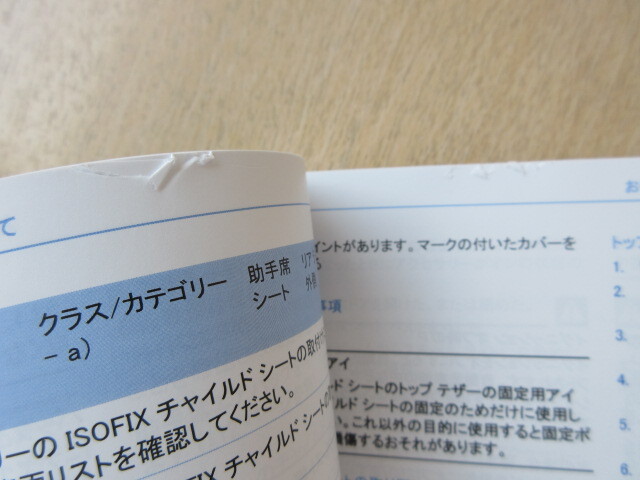 て
クラス/カテゴリー 助手席 リア
シート 外側
- a)
シートの取付
ーの ISOFIX チャイルド
を確認してください。
リスト
FIX チャイルド シートの
お
イントがあります。マークの付いたカバーを
る
事項
アイ
ド シートのトップ テザーの固定用アイ
ルド シートの固定のためだけに使用し
い。これ以外の目的に使用すると固定ポ
損傷するおそれがあります。
トッ
1.
2.
3.
4.
5.
6.